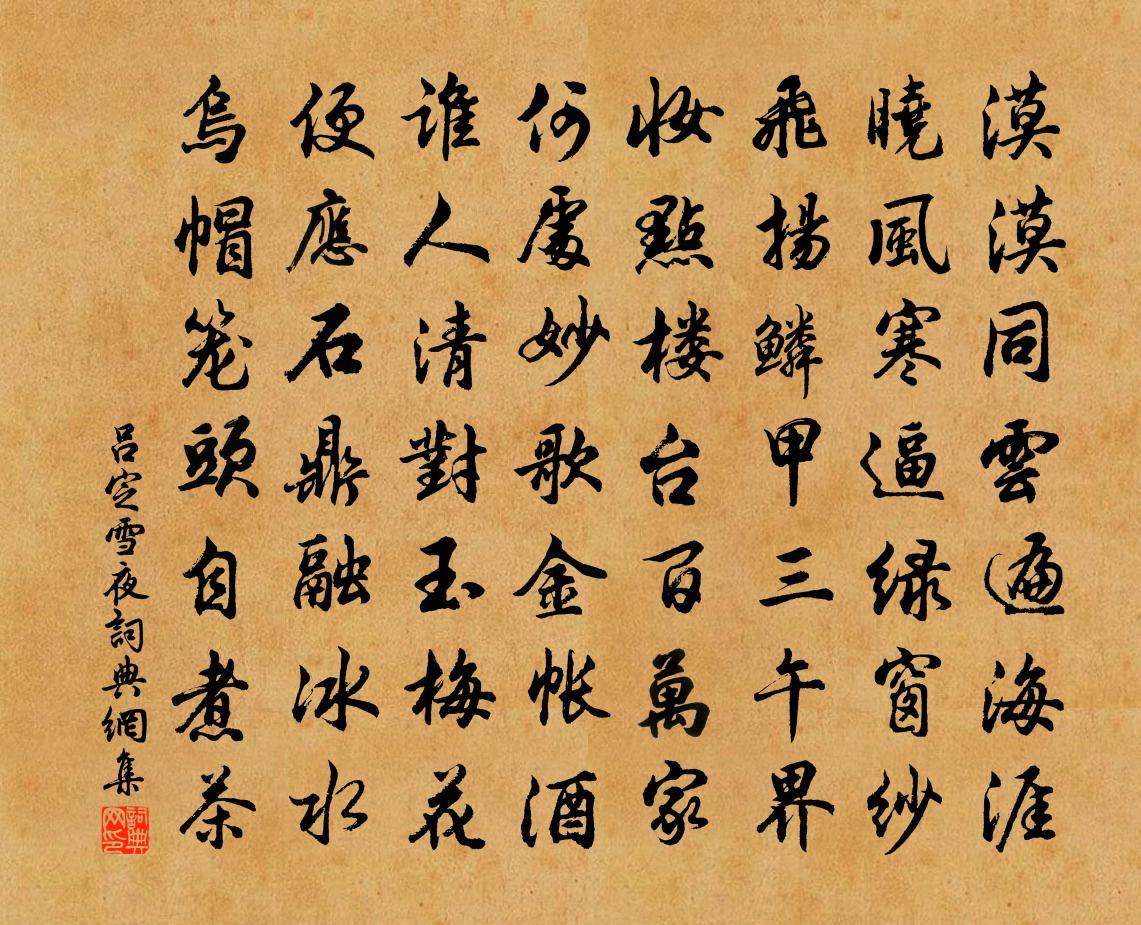 漠漠同雲遍海涯
曉風寒逼緑窗紗
飛揚鱗甲三午界
妝點楼台百萬家
何處妙歌金帐酒
誰人清對玉梅花
便應石鼎融冰水
烏帽笼頭自煮茶
吕定雪夜詞典網集
詞典网印